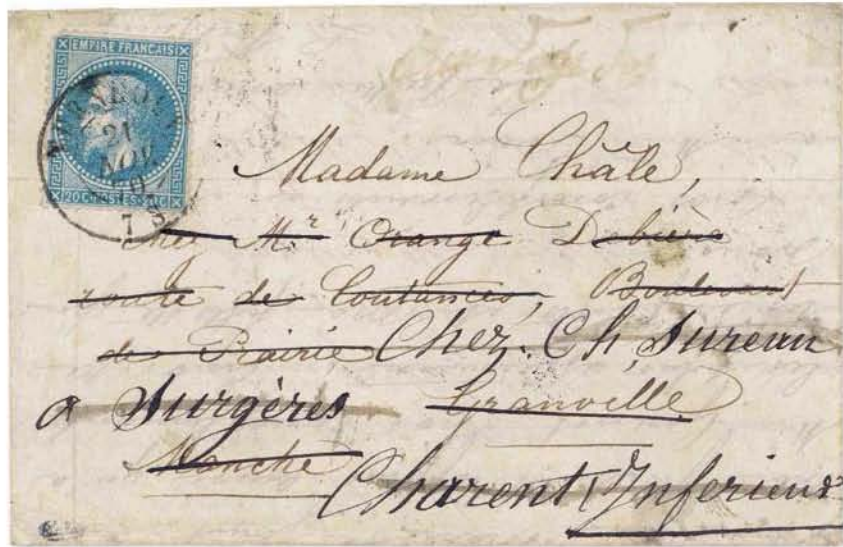 EMPIRE FRANÇAIS
21
NOV
20 C POSTES 20 C
Madame Châle,
Chez Mr Orange Dabière
route de Coutances, Boulevart
de Prairie Chez Ch, Sureau
a Surgères Granville
Manche Charent, Inferieure